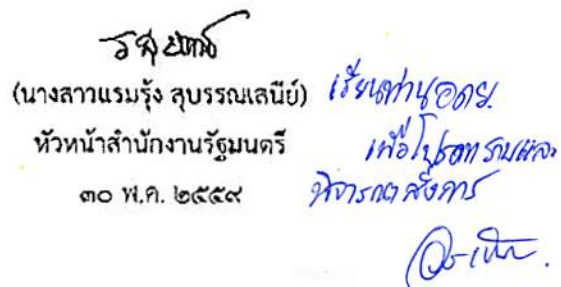 (นางสาวแรมรุ้ง สุบรรณเสนีย์)
หัวหน้าสำนักงานรัฐมนตรี
๓๐ พ.ค. ๒๕๕๙
เรียนท่าน อดย.
เพื่อโปรดทราบและ
พิจารณาสั่งการ